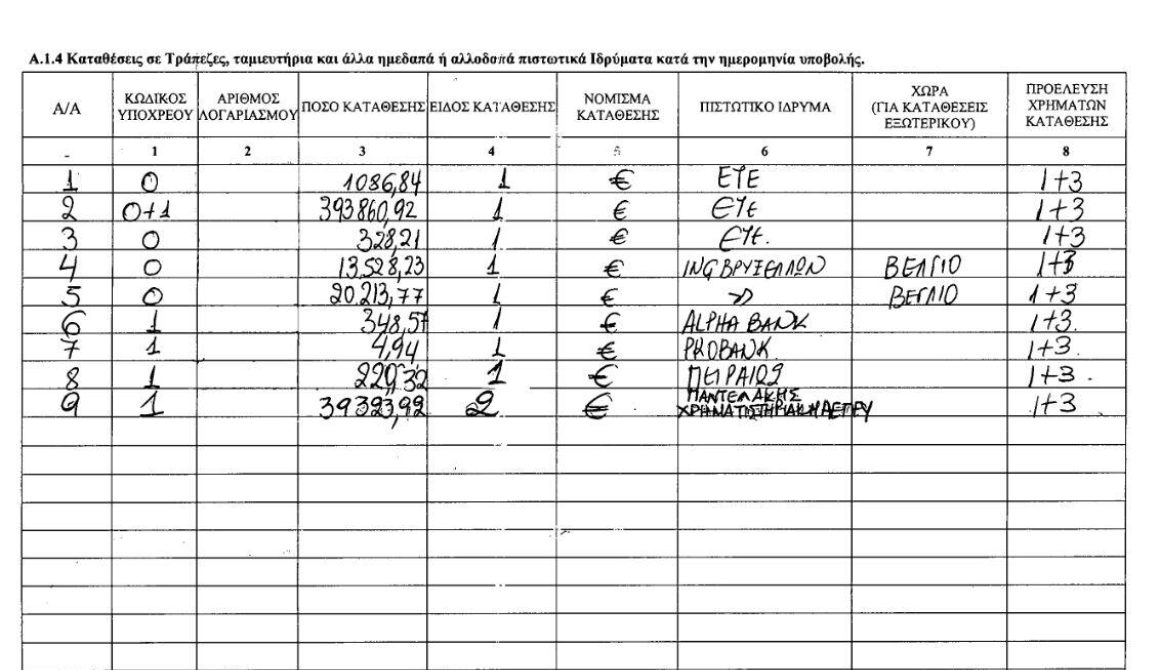 Α.1.4 Καταθέσεις σε Τράπεζες, ταμιευτήρια και άλλα ημεδαπά ή αλλοδαπά πιστωτικά Ιδρύματα κατά την ημερομηνία υποβολής.
Α/Α ΚΩΔΙΚΟΣ ΥΠΟΧΡΕΟΥ ΑΡΙΘΜΟΣ ΛΟΓΑΡΙΑΣΜΟΥ ΠΟΣΟ ΚΑΤΑΘΕΣΗΣ ΕΙΔΟΣ ΚΑΤΑΘΕΣΗΣ ΝΟΜΙΣΜΑ ΚΑΤΑΘΕΣΗΣ ΠΙΣΤΩΤΙΚΟ ΙΔΡΥΜΑ ΧΩΡΑ (ΓΙΑ ΚΑΤΑΘΕΣΕΙΣ ΕΞΩΤΕΡΙΚΟΥ) ΠΡΟΕΛΕΥΣΗ ΧΡΗΜΑΤΩΝ ΚΑΤΑΘΕΣΗΣ
- 1 2 3 4 5 6 7 8
1 0 1086,84 1 € ΕΤΕ 1+3
2 0+1 393860,92 1 € ΕΤΕ 1+3
3 0 328,21 1 € ΕΤΕ. 1+3
4 0 13.528,23 1 € ING ΒΡΥΞΕΛΛΩΝ ΒΕΛΓΙΟ 1+3
5 0 20.213,77 1 € >> ΒΕΓΛΙΟ 1+3
6 1 348,57 1 € ALPHA BANK 1+3.
7 1 4,94 1 € PROBANK 1+3.
8 1 229,32 1 € ΠΕΙΡΑΙΩΣ 1+3.
9 1 39323,92 2 € ΠΑΝΤΕΛΑΚΗΣ ΧΡΗΜΑΤΙΣΤΗΡΙΑΚΗ ΑΕΠΕΥ 1+3